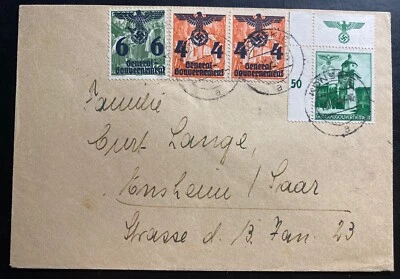 6 6
General-
Gouvernement
4 4
General-
Gouvernement
4 4
General-
Gouvernement
50
Familie
Curt Lange,
Ensheim / Saar
Strasse d. 13. Jan. 23